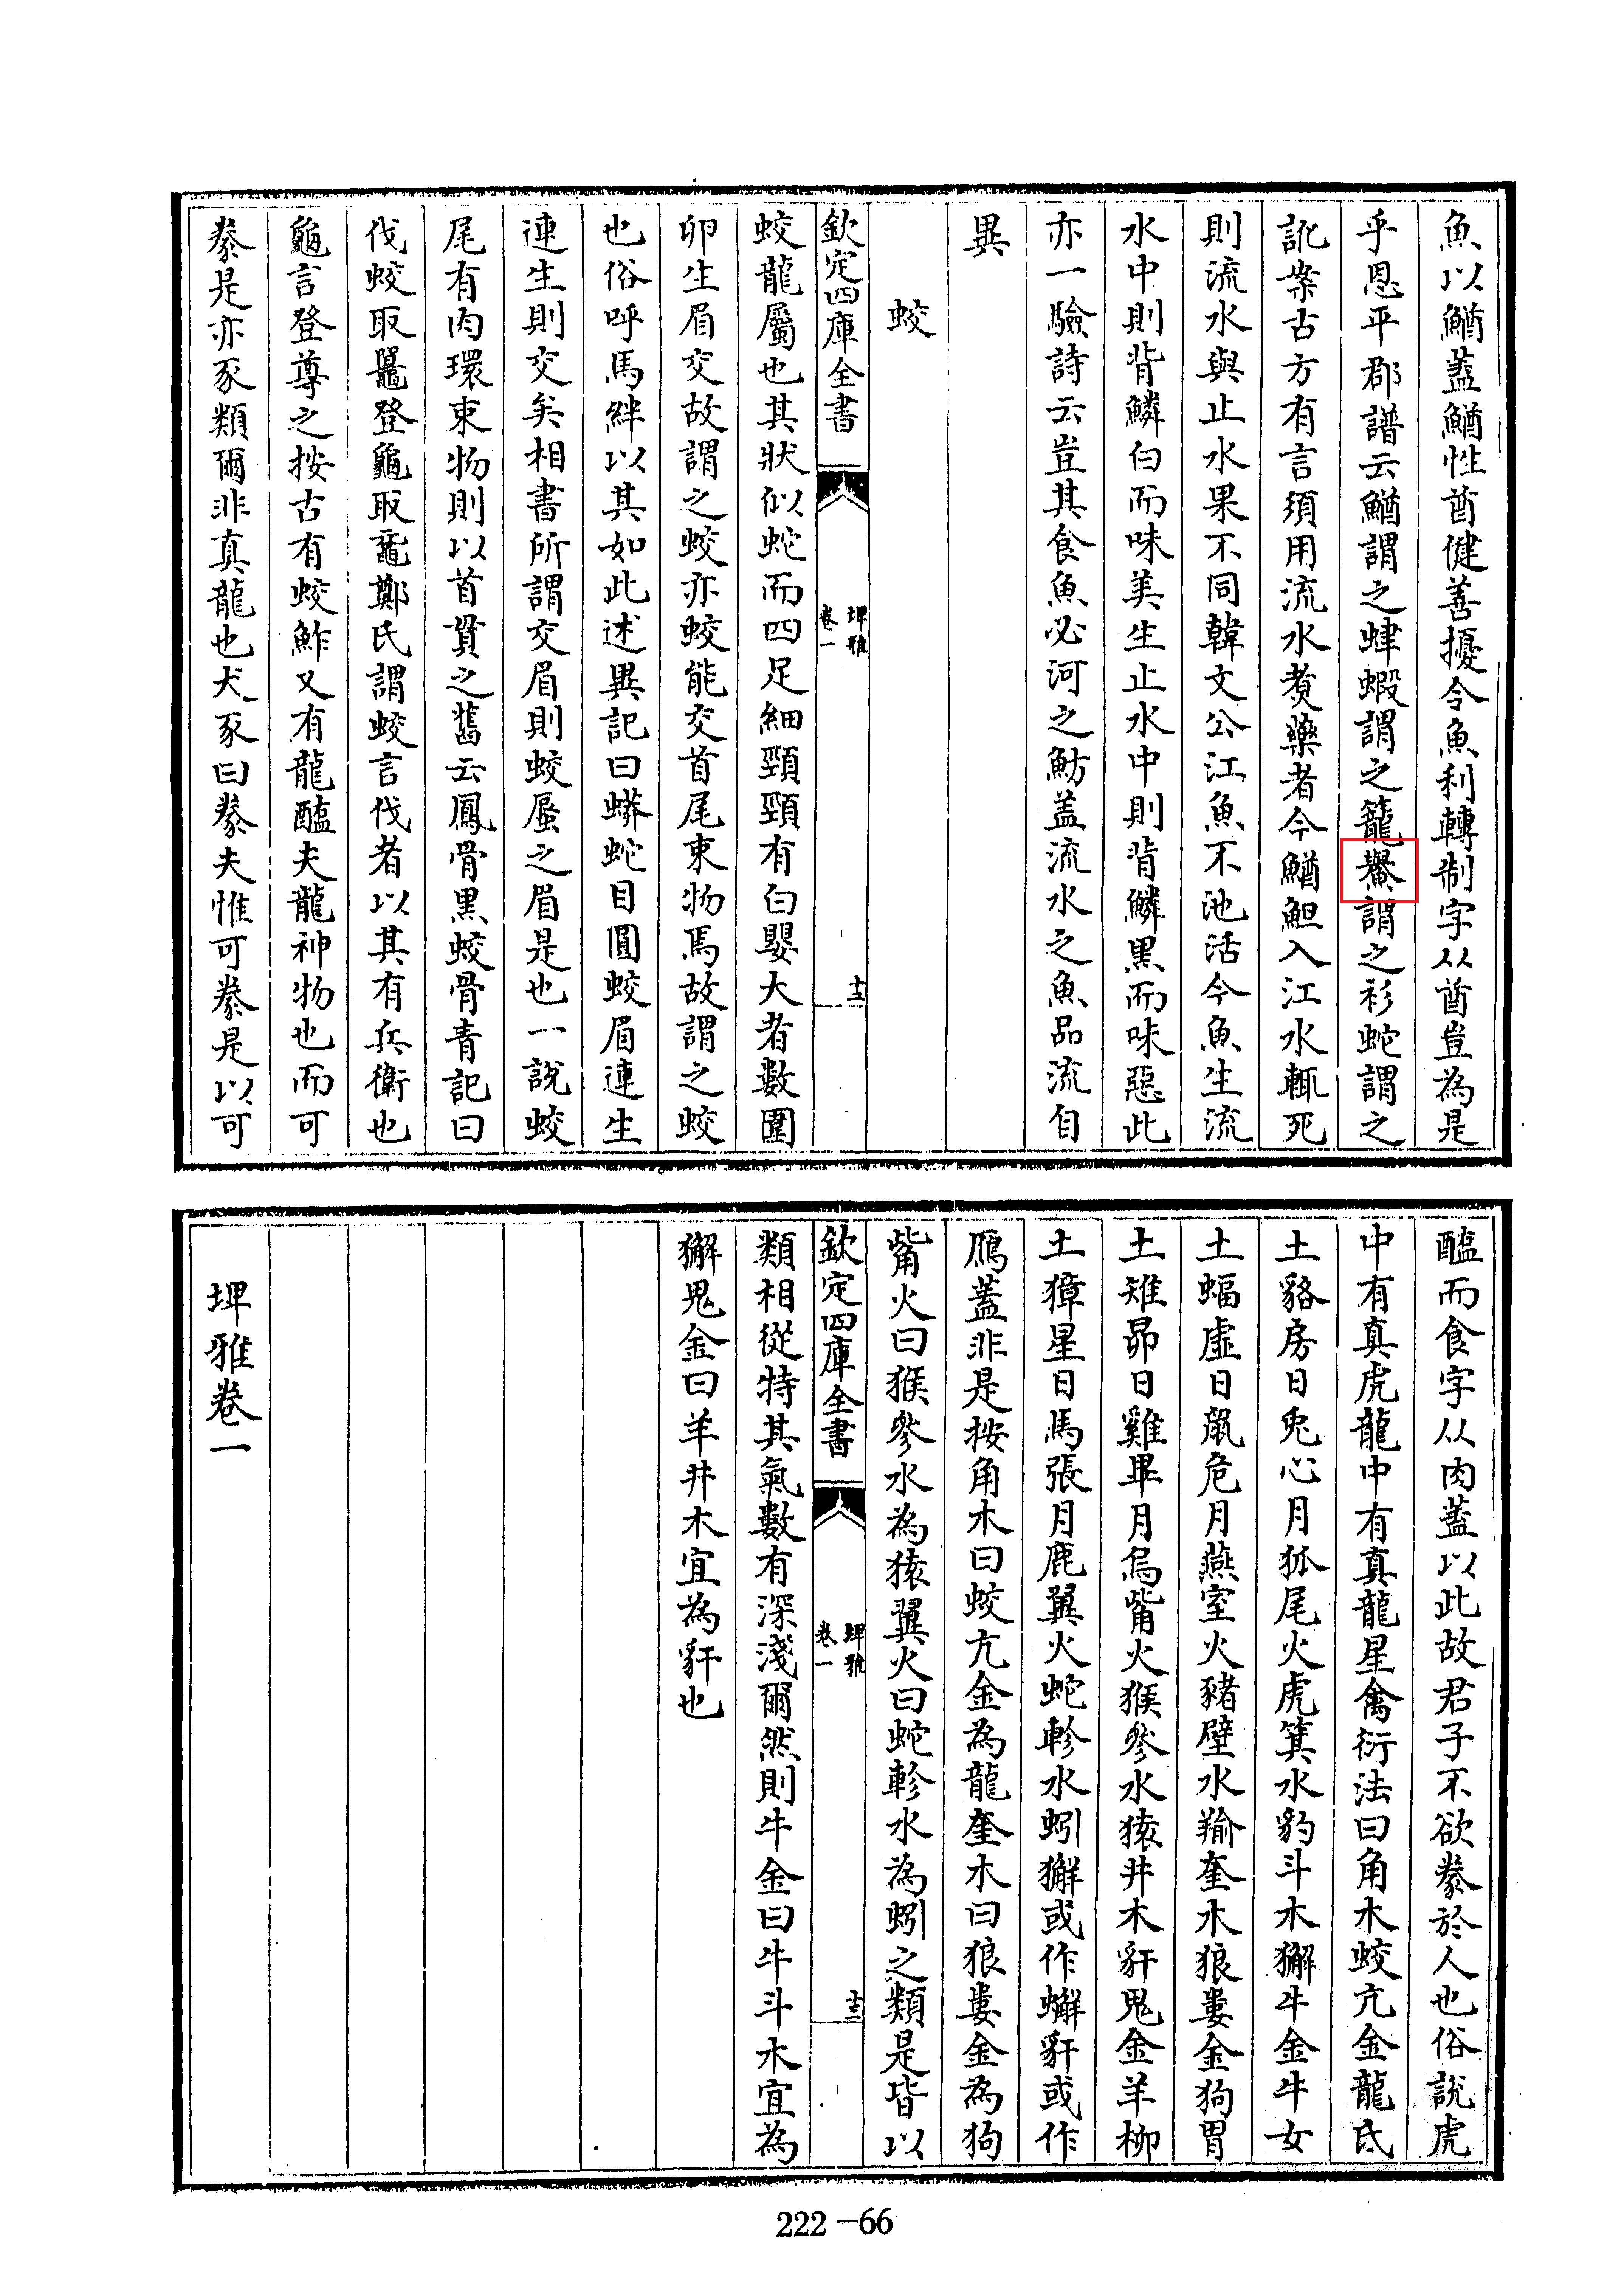 魚以鰌蓋鰌性酋健善擾令魚利轉制字从酋豈為是
乎恩平郡譜云鰌謂之蝦謂之籠鱟謂之衫蛇謂之
訛案古方有言須用流水煮藥者今鰌䱇入江水輒死
則流水與止水果不同韓文公江魚不池活今魚生流
水中則背鱗白而味美生止水中則背鱗黒而味惡此
亦一驗詩云豈其食魚必河之魴盖流水之魚品流自
異
蛟
欽定四庫全書
埤雅
卷一
十三
蛟龍屬也其狀似蛇而四足細頸頸有白嬰大者數圍
卵生眉交故謂之蛟亦蛟能交首尾束物馬故謂之蛟
也俗呼馬絆以其如此述異記曰蟒蛇目圓蛟眉連生
連生則交矣相書所謂交眉則蛟蜃之眉是也一說蛟
尾有肉環束物則以首貫之舊云鳳骨黒蛟骨青記曰
伐蛟取鼉登龜取黿鄭氏謂蛟言伐者以其有兵衛也
龜言登尊之按古有蛟鮓又有龍醢夫龍神物也而可
豢是亦豕類爾非真龍也犬豕曰豢夫惟可豢是以可
醢而食字从肉蓋以此故君子不欲豢於人也俗說虎
中有真虎龍中有真龍星禽衍法曰角木蛟亢金龍氐
土貉房日兎心月狐尾火虎箕水豹斗木獬牛金牛女
土蝠虛日鼠危月燕室火豬壁水㺄奎水狼婁金狗胃
土雉昴日雞畢月烏觜火猴參水猿井木豻鬼金羊柳
土獐星日馬張月鹿翼火蛇軫水蚓獬或作蠏豻或作
鴈蓋非是按角木曰蛟亢金為龍奎木曰狼婁金為狗
觜火曰猴參水為猿翼火曰蛇軫水為蚓之類是皆以
欽定四庫全書
埤雅
卷一
十三
類相從特其氣數有深淺爾然則牛金曰牛斗水宜為
獬鬼金曰羊井木宜為豻也
埤雅卷一
222-66